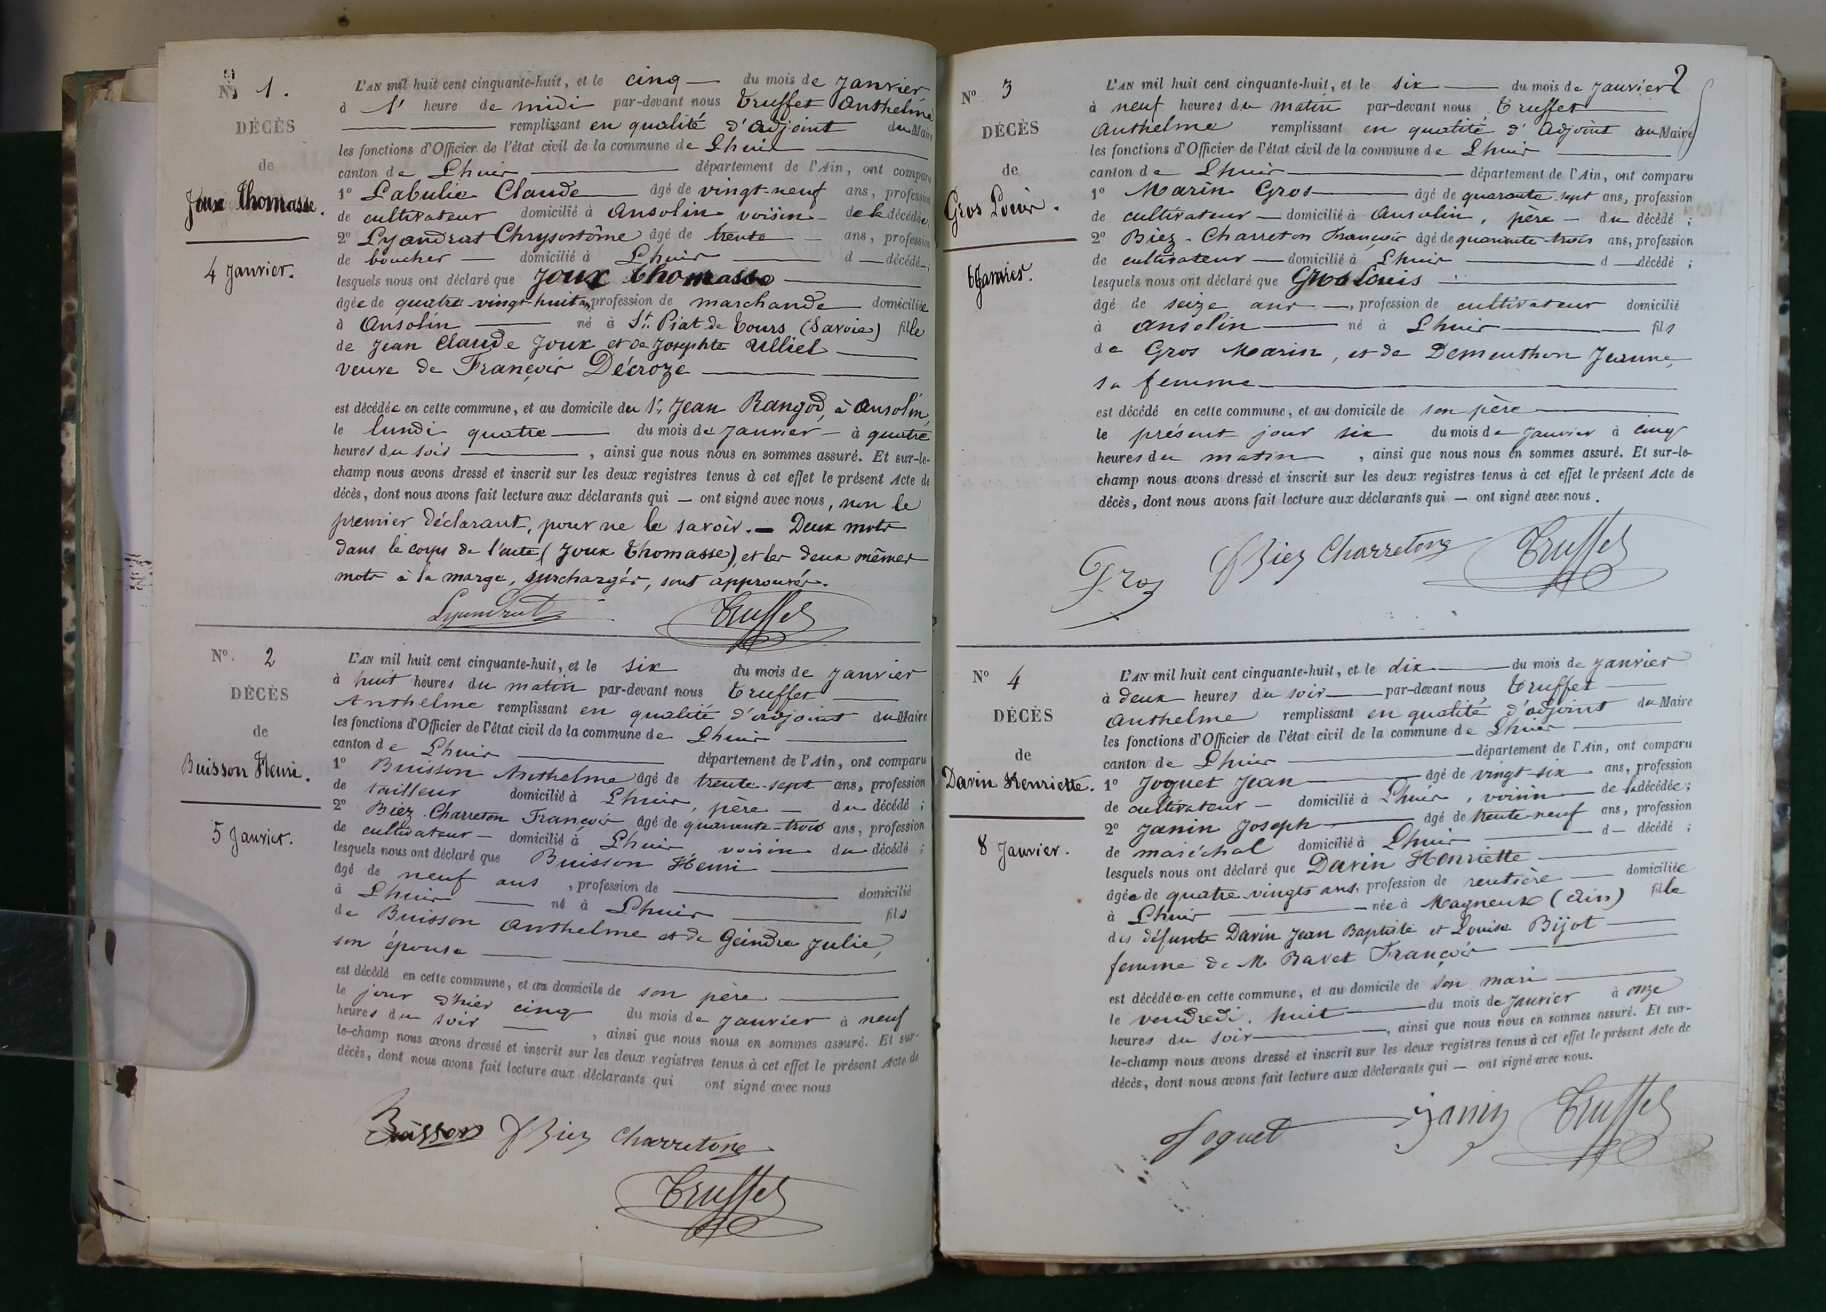 N° 1.
DÉCÈS
de
Joux Thomasse.
4 Janvier.
L'AN mil huit cent cinquante-huit, et le cinq du mois de Janvier
à 1 heure de midi par-devant nous Truffet Anthelme
remplissant en qualité d'adjoint du Maire
les fonctions d'Officier de l'état civil de la commune de Lhuis
canton de Lhuis département de l'Ain, ont comparu
1° Labulie Claude âgé de vingt-neuf ans, profession
de cultivateur domicilié à Ansolin voisin de la décédée,
2° Lyandrat Chrysostôme âgé de trente ans, profession
de boucher domicilié à Lhuis d décédé,
lesquels nous ont déclaré que Joux Thomasse
âgée de quatre vingt-huit ans, profession de marchande domiciliée
à Ansolin né à St. Piat de Tours (Savoie) fille
de Jean Claude Joux et de Josephte Ulliel
veuve de François Décroze
est décédée en cette commune, et au domicile du Sr. Jean Rangod, à Ansolin,
le lundi quatre du mois de Janvier à quatre
heures du soir , ainsi que nous nous en sommes assuré. Et sur-le-
champ nous avons dressé et inscrit sur les deux registres tenus à cet effet le présent Acte de
décès, dont nous avons fait lecture aux déclarants qui — ont signé avec nous, non le
premier déclarant, pour ne le savoir. — Deux mots
dans le corps de l'acte (Joux Thomasse), et les deux mêmes
mots à la marge, surchargés, sont approuvés.
Lyandrat Truffet
N° 2
DÉCÈS
de
Buisson Henri.
5 Janvier.
L'AN mil huit cent cinquante-huit, et le six du mois de Janvier
à huit heures du matin par-devant nous Truffet
Anthelme remplissant en qualité d'adjoint du Maire
les fonctions d'Officier de l'état civil de la commune de Lhuis
canton de Lhuis département de l'Ain, ont comparu
1° Buisson Anthelme âgé de trente-sept ans, profession
de tailleur domicilié à Lhuis, père du décédé ;
2° Biez-Charreton François âgé de quarante-trois ans, profession
de cultivateur domicilié à Lhuis voisin du décédé ;
lesquels nous ont déclaré que Buisson Henri
âgé de neuf ans , profession de domicilié
à Lhuis né à Lhuis fils
de Buisson Anthelme et de Geindre Julie,
son épouse
est décédé en cette commune, et au domicile de son père
le jour d'hier cinq du mois de Janvier à neuf
heures du soir , ainsi que nous nous en sommes assuré. Et sur-
le-champ nous avons dressé et inscrit sur les deux registres tenus à cet effet le présent Acte de
décès, dont nous avons fait lecture aux déclarants qui ont signé avec nous
Buisson Biez Charreton
Truffet
2
N° 3
DÉCÈS
de
Gros Louis.
6 Janvier.
L'AN mil huit cent cinquante-huit, et le six du mois de Janvier
à neuf heures du matin par-devant nous Truffet
Anthelme remplissant en qualité d'Adjoint au Maire
les fonctions d'Officier de l'état civil de la commune de Lhuis
canton de Lhuis département de l'Ain, ont comparu
1° Marin Gros âgé de quarante-sept ans, profession
de cultivateur domicilié à Ansolin, père du décédé ;
2° Biez-Charreton François âgé de quarante-trois ans, profession
de cultivateur domicilié à Lhuis d décédé ;
lesquels nous ont déclaré que Gros Louis
âgé de seize ans , profession de cultivateur domicilié
à Ansolin né à Lhuis fils
de Gros Marin, et de Dementhon Jeanne,
sa femme
est décédé en cette commune, et au domicile de son père
le présent jour six du mois de Janvier à cinq
heures du matin , ainsi que nous nous en sommes assuré. Et sur-le-
champ nous avons dressé et inscrit sur les deux registres tenus à cet effet le présent Acte de
décès, dont nous avons fait lecture aux déclarants qui — ont signé avec nous.
Gros Biez Charreton Truffet
N° 4
DÉCÈS
de
Davin Henriette.
8 Janvier.
L'AN mil huit cent cinquante-huit, et le dix du mois de Janvier
à deux heures du soir par-devant nous Truffet
Anthelme remplissant en qualité d'adjoint du Maire
les fonctions d'Officier de l'état civil de la commune de Lhuis
canton de Lhuis département de l'Ain, ont comparu
1° Joguet Jean âgé de vingt-six ans, profession
de cultivateur domicilié à Lhuis, voisin de la décédée ;
2° Janin Joseph âgé de trente-neuf ans, profession
de maréchal domicilié à Lhuis d décédé ;
lesquels nous ont déclaré que Davin Henriette
âgée de quatre vingts ans, profession de rentière domiciliée
à Lhuis née à Magneux (Ain) fille
des défunts Davin Jean Baptiste et Louise Bijot
femme de M. Ravet François
est décédée en cette commune, et au domicile de son mari
le vendredi huit du mois de Janvier à onze
heures du soir , ainsi que nous nous en sommes assuré. Et sur-
le-champ nous avons dressé et inscrit sur les deux registres tenus à cet effet le présent Acte de
décès, dont nous avons fait lecture aux déclarants qui — ont signé avec nous.
Joguet Janin Truffet